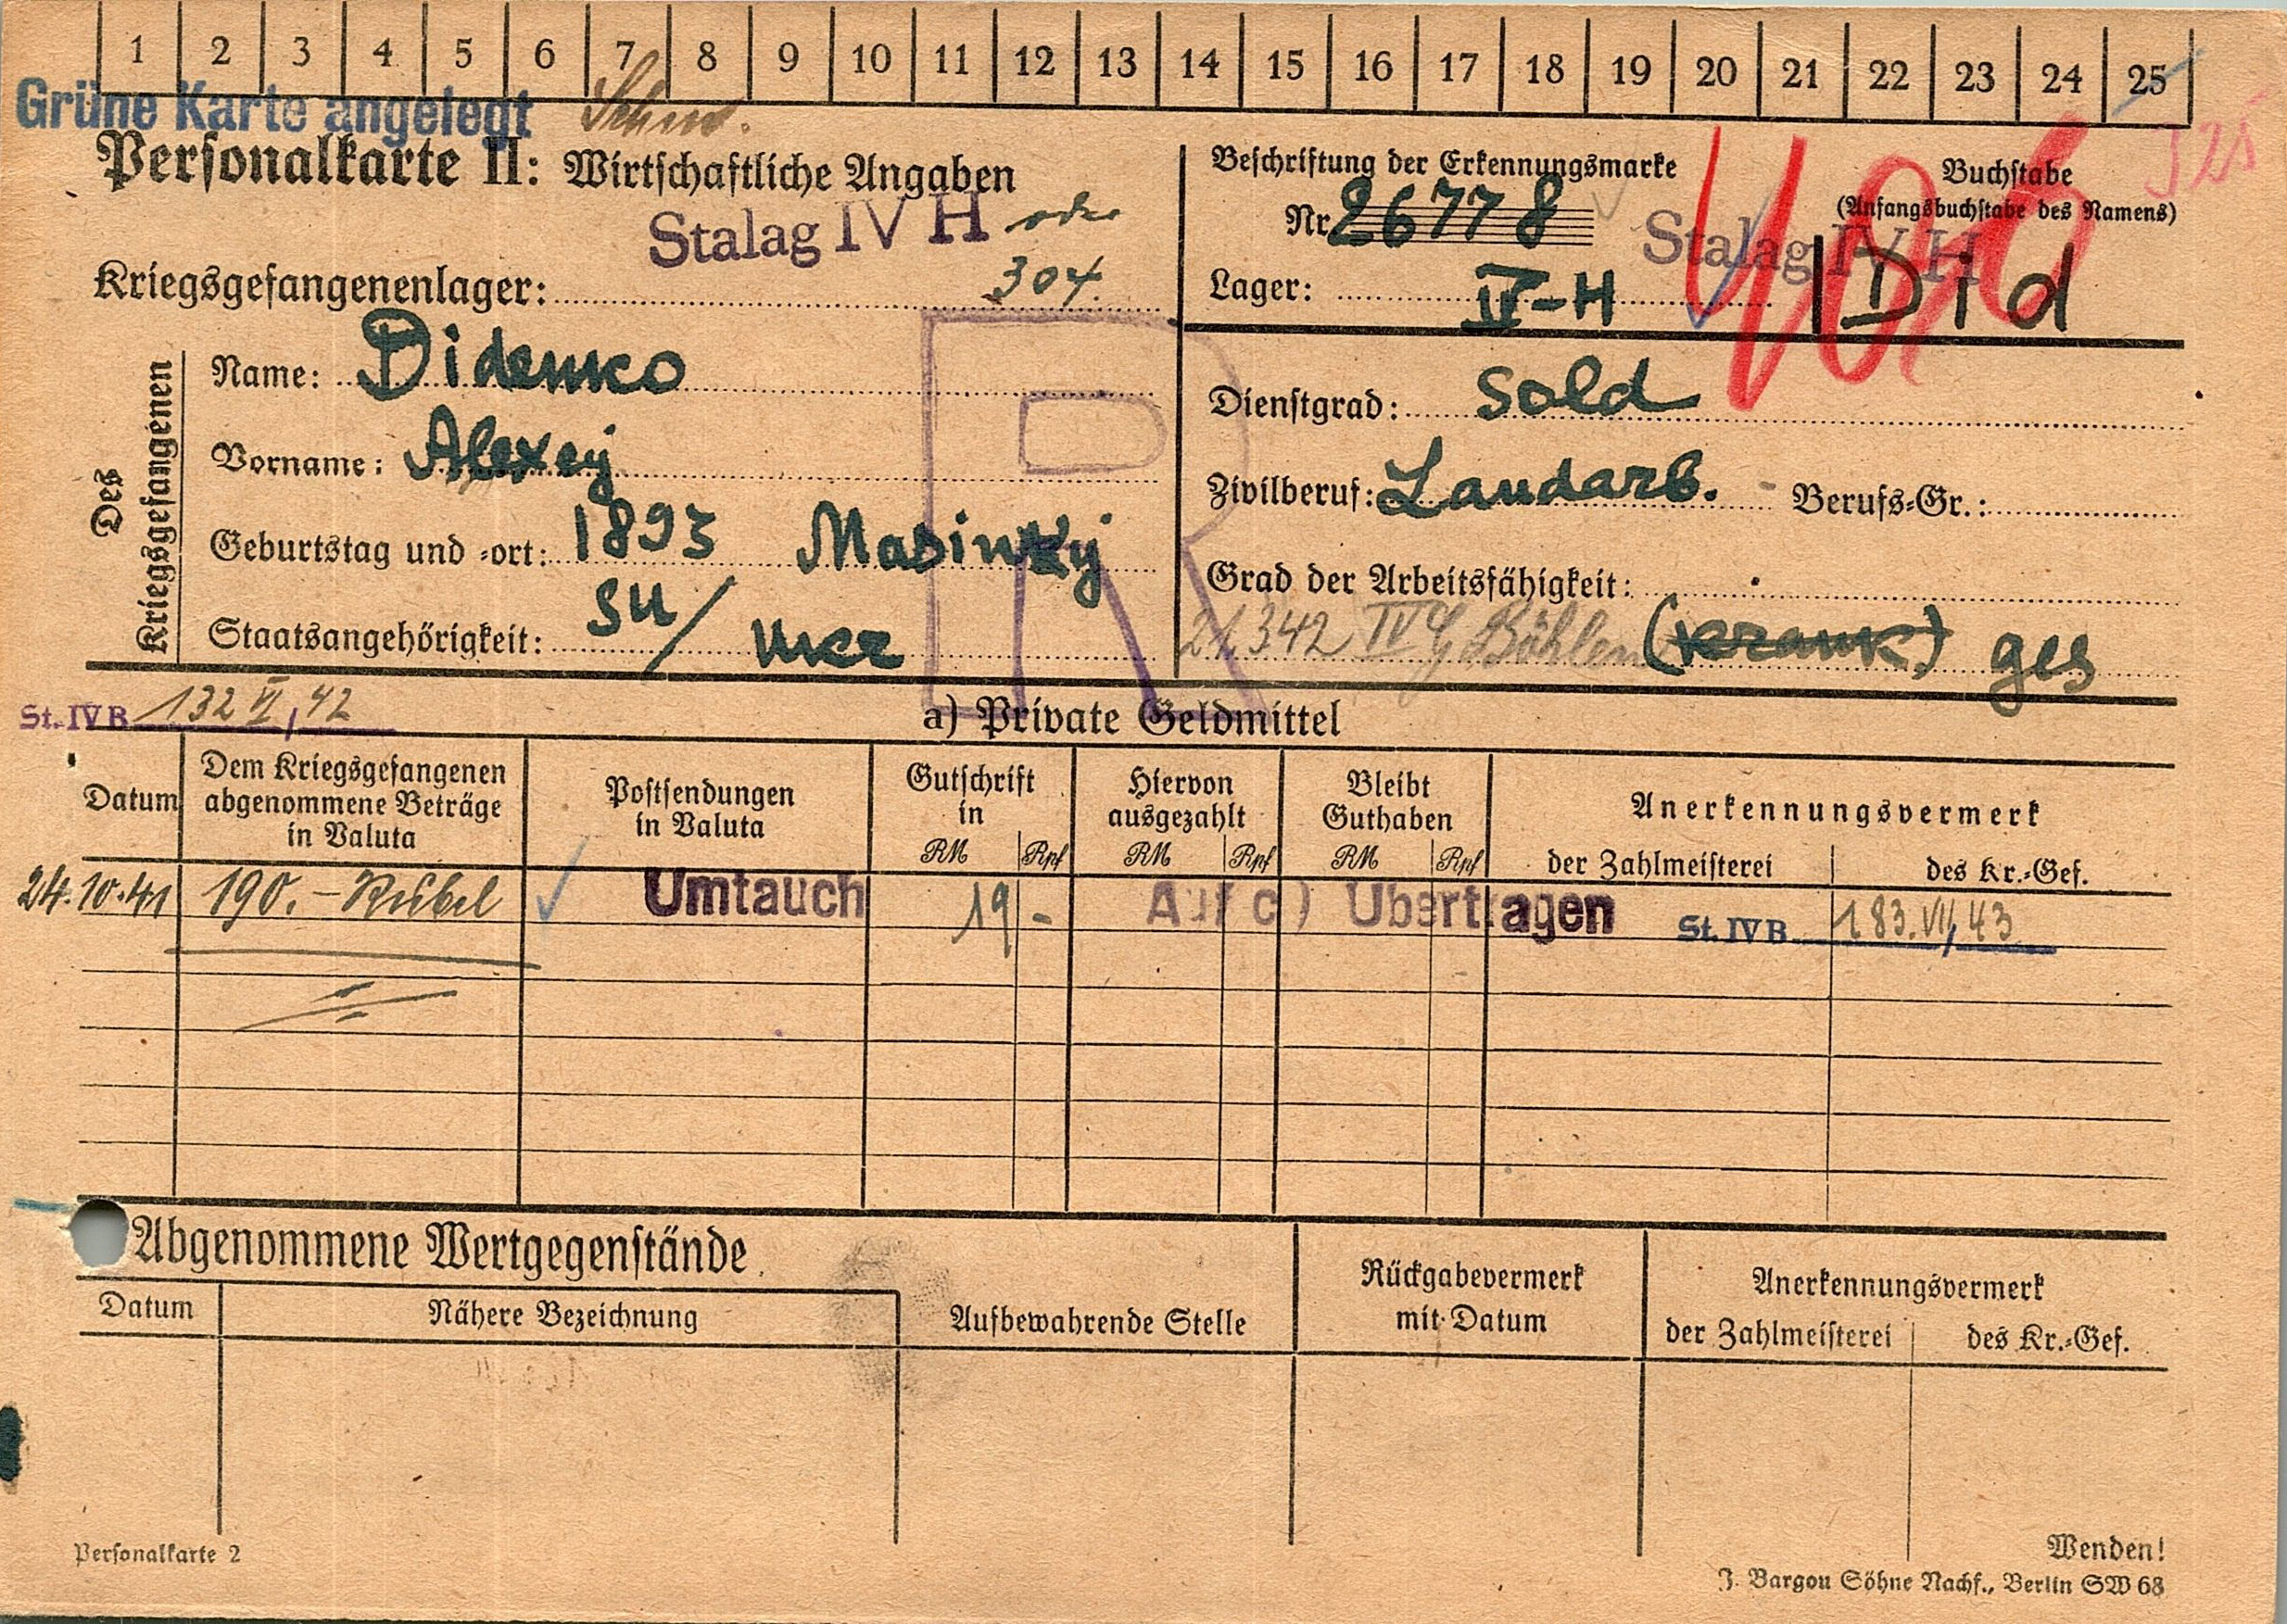 1 2 3 4 5 6 7 8 9 10 11 12 13 14 15 16 17 18 19 20 21 22 23 24 25
Grüne Karte angelegt
Personalkarte II: Wirtschaftliche Angaben
Stalag IV H oder
304.
Kriegsgefangenenlager:
Beschriftung der Erkennungsmarke
Nr. 26778
Lager: IV-H
Stalag IV H
Buchstabe
(Anfangsbuchstabe des Namens)
Did
325
Des Kriegsgefangenen
Name: Didenko
Vorname: Alexej
Geburtstag und -ort: 1893 Masinkj
Staatsangehörigkeit: SU/ Ukr
R
Dienstgrad: Sold
Zivilberuf: Landarb. - Berufs-Gr.:
Grad der Arbeitsfähigkeit:
21.342 IV G Böhlen (krank) ges
St. IV B 132 VI/42
a) Private Geldmittel
Datum
Dem Kriegsgefangenen abgenommene Beträge in Valuta
Postsendungen in Valuta
Gutschrift in
RM Rpf
Hiervon ausgezahlt
RM Rpf
Bleibt Guthaben
RM Rpf
Anerkennungsvermerk
der Zahlmeisterei des Kr.-Gef.
24.10.41 190.- Rubel Umtauch 19 - Auf c) Übertragen St. IV B 183.VII/43
Abgenommene Wertgegenstände
Datum
Nähere Bezeichnung
Aufbewahrende Stelle
Rückgabevermerk mit Datum
Anerkennungsvermerk
der Zahlmeisterei des Kr.-Gef.
Personalkarte 2
Wenden!
J. Bargou Söhne Nachf., Berlin SW 68